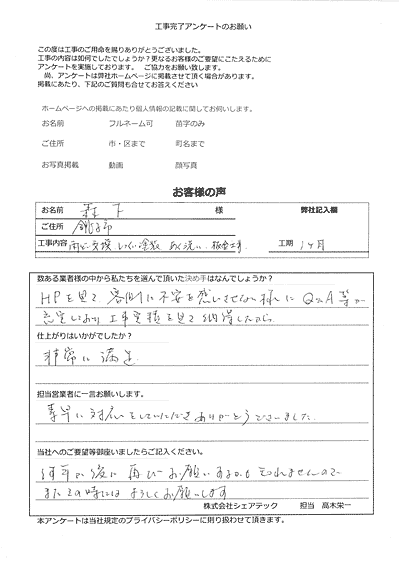 工事完了アンケートのお願い
この度は工事のご用命を賜りありがとうございました。
工事の内容は如何でしたでしょうか?更なるお客様のご要望にこたえるために
アンケートを実施しております。 ご協力をお願い致します。
尚、アンケートは弊社ホームページに掲載させて頂く場合があります。
掲載にあたり、下記のご質問も合せてお答えください
ホームページへの掲載にあたり個人情報の記載に関してお伺いします。
お名前 フルネーム可 苗字のみ
ご住所 市・区まで 町名まで
お写真掲載 動画 顔写真
お客様の声
お名前 森下 様 弊社記入欄
ご住所
工事内容 雨どい交換 塗装 あく洗い 工期 1ヶ月
数ある業者様の中から私たちを選んで頂いた決め手はなんでしょうか?
HPを見て、客側に不安を感じさせない様にQ&A等が
充実しており工事実績を見て納得したから。
仕上がりはいかがでしたか?
非常に満足
担当営業者に一言お願いします。
素早に対応をしていただきありがとうございました。
当社へのご要望等御座いましたらご記入ください。
何年か後に再びお願いするかも知れませんので
またその時にはよろしくお願いします
株式会社シェアテック 担当 高木栄一
本アンケートは当社規定のプライバシーポリシーに則り扱わせて頂きます。